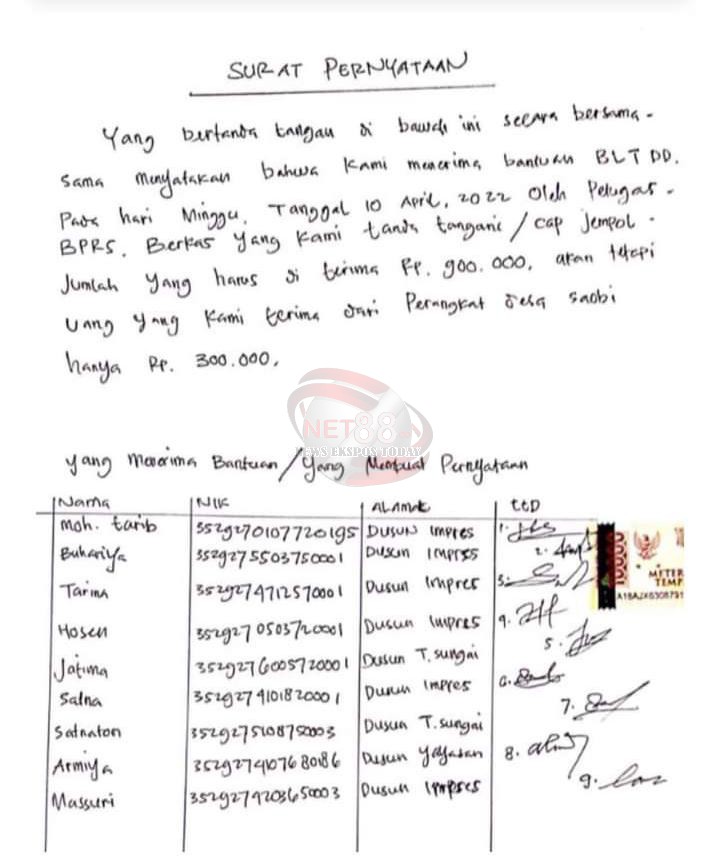 SURAT PERNYATAAN
Yang bertanda tangan di bawah ini secara bersama-
sama menyatakan bahwa kami menerima bantuan BLT DD.
Pada hari Minggu, Tanggal 10 April, 2022 oleh Petugas-
BPRS. Berkas yang kami tanda tangani / cap jempol -
Jumlah yang harus di terima Rp. 900.000, akan tetapi
uang yang kami terima dari Perangkat desa saobi
hanya Rp. 300.000,
NET88
NEWS EKSPOS TODAY
yang Menerima Bantuan / Yang Membuat Pernyataan
Nama NIK ALAMAT TTD
moh. tarib 3529270107720195 DUSUN IMPRES 1.
Buhariya 3529275503750001 Dusun IMPRES 2.
Tarima 3529274712570001 Dusun Impres 3.
Hosen 3529270503720001 Dusun Impres 4.
Jatima 3529276005720001 Dusun T. sungai 5.
Satna 3529274101820001 Dusun Impres 6.
Satnaton 3529275108750003 Dusun T. sungai 7.
Armiya 3529274107680186 Dusun yayasan 8.
Massuri 3529274203650003 Dusun Impres 9.
10000
METER
TEMP